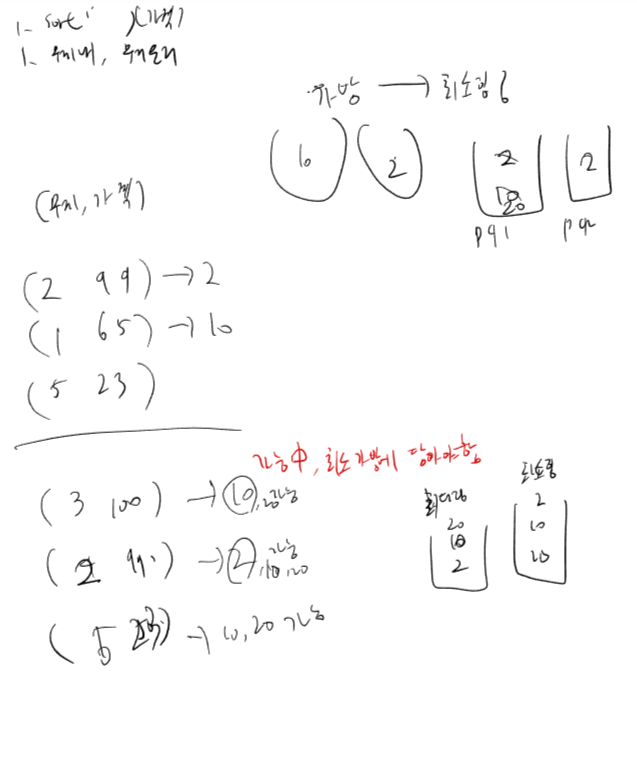 1. sort (가격)
1. 무게
가방 → 최소힙
10 2 2 2
20
pq1 pq2
(무게, 가격)
(2 99) → 2
(1 65) → 10
(5 23)
가능中, 최소 가방에 담아야함
(3 100) → 10, 20가능
최대힙 최소힙
20 2
10 10
2 20
(2 99) → 2, 10, 20 가능
(5 23) → 10, 20 가능